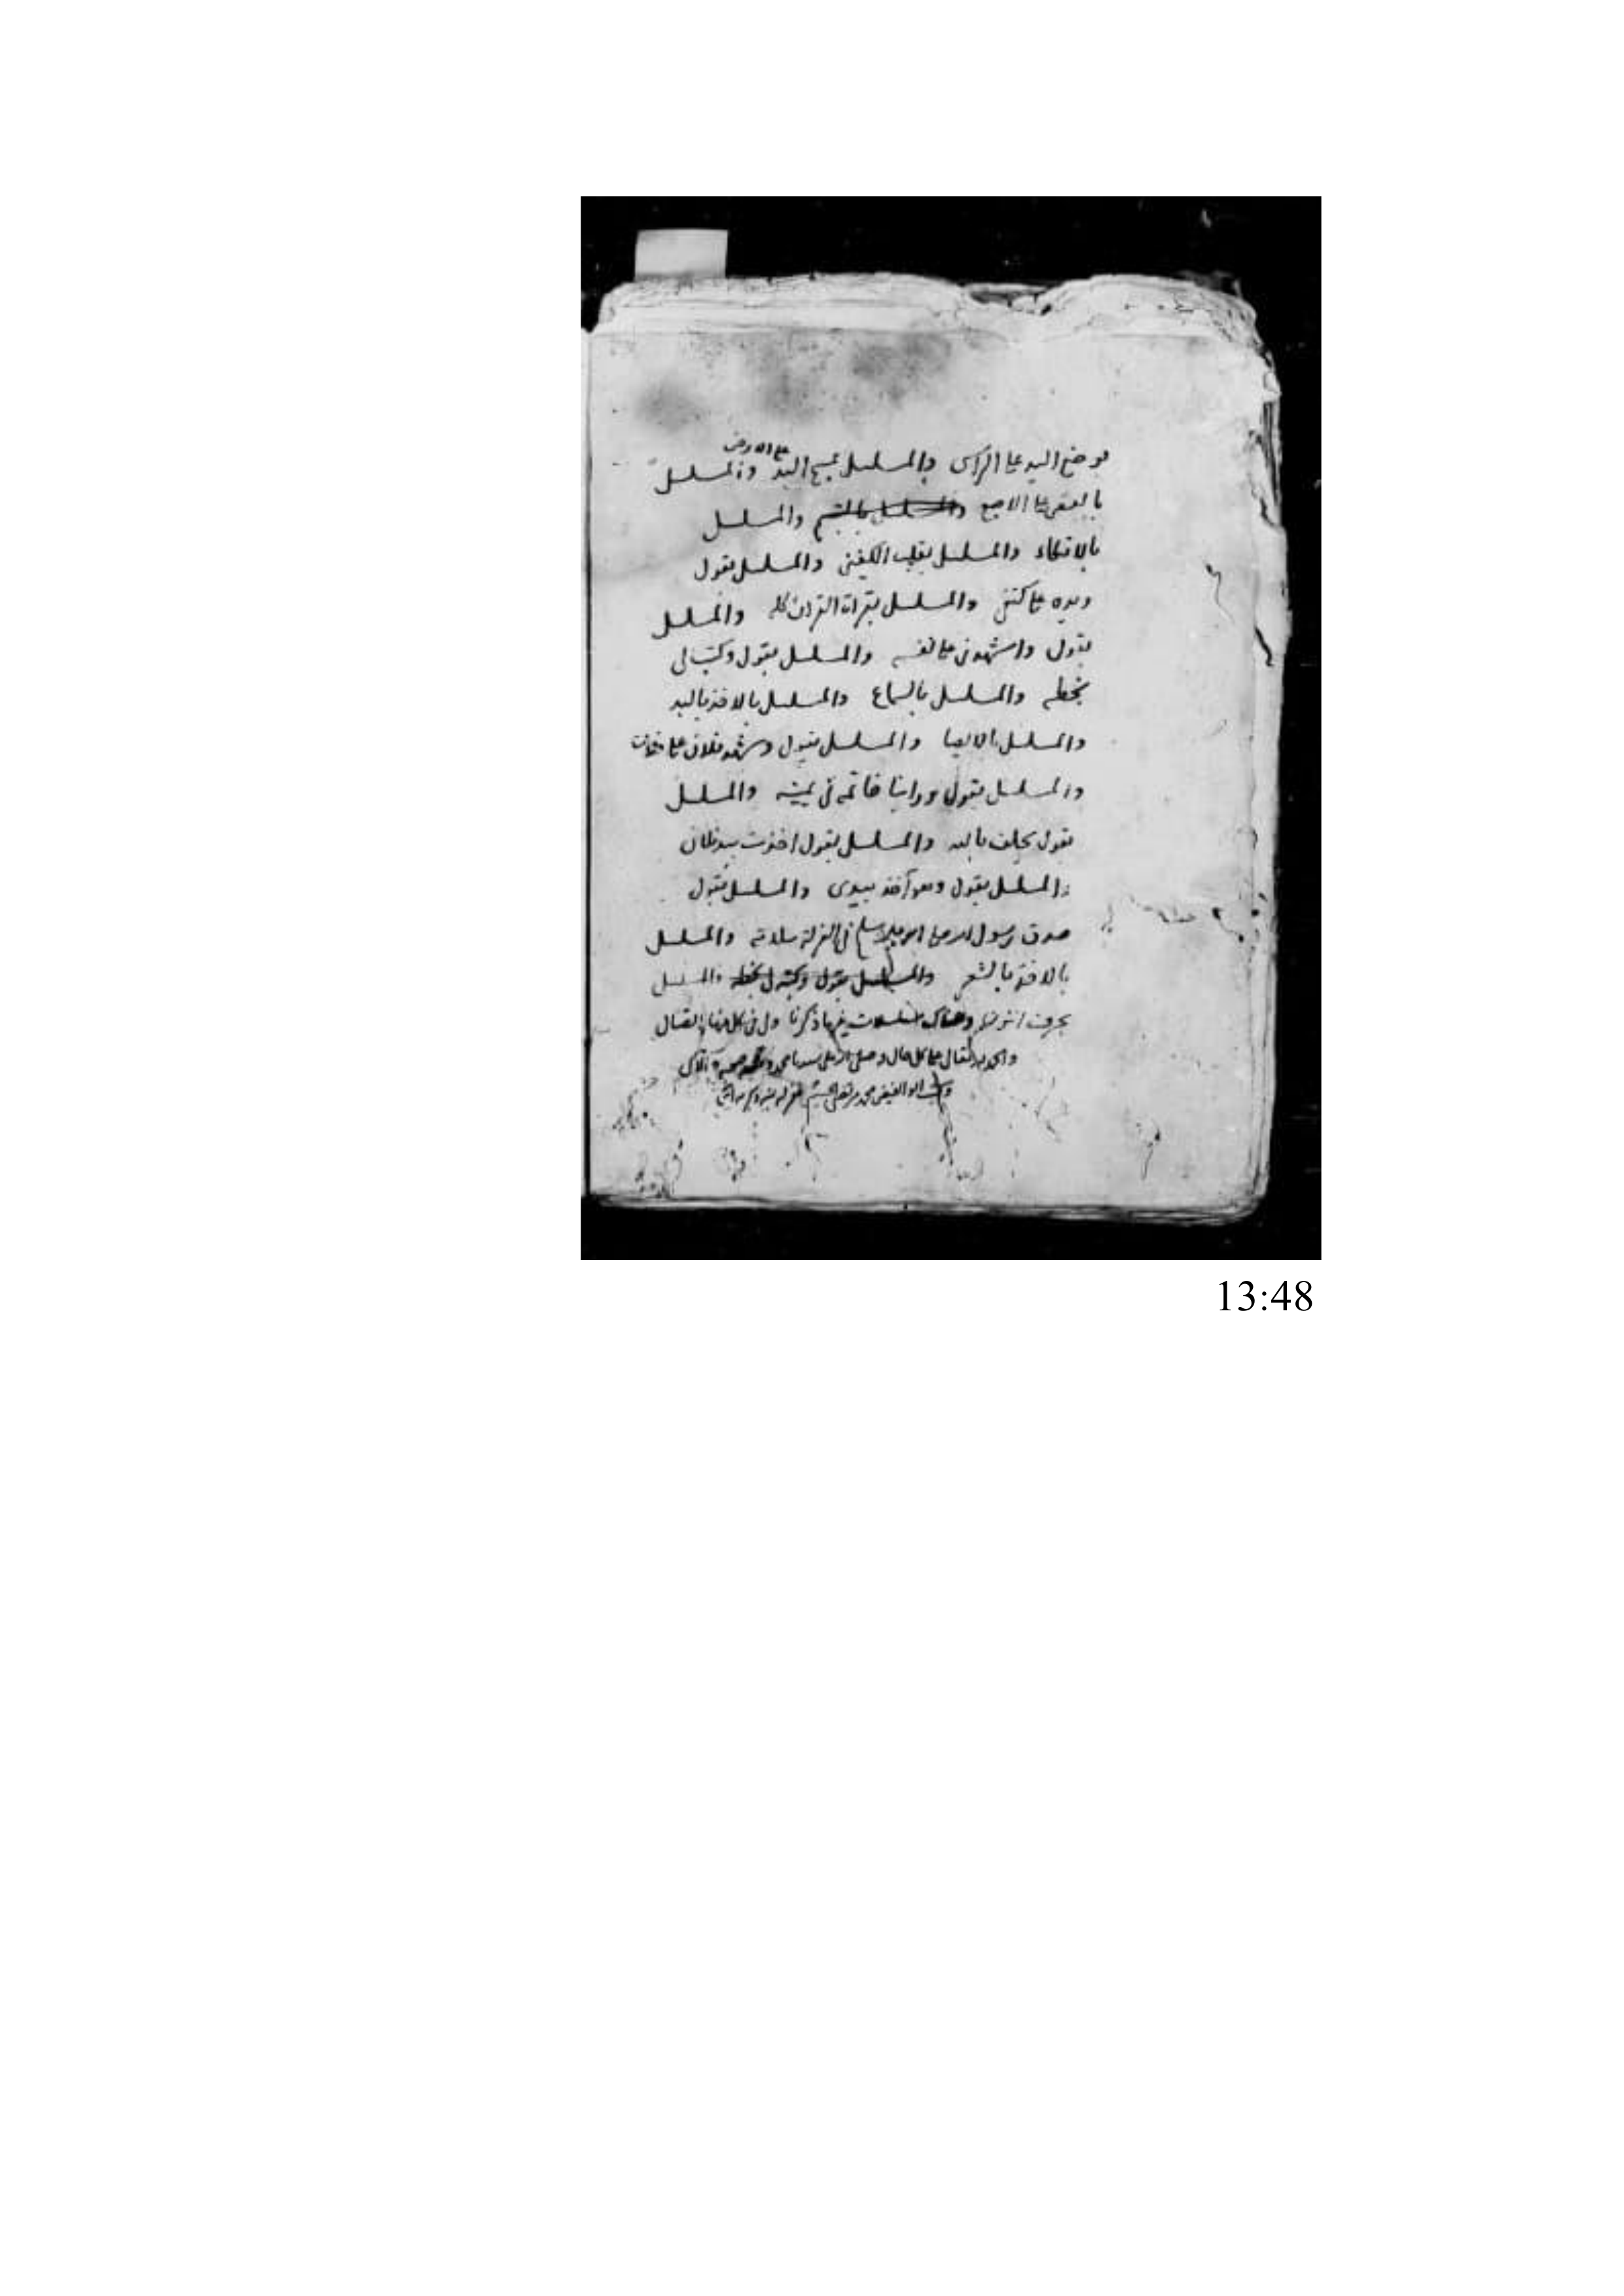 بوضع اليد على الراس والمسلسل بمسح اليد على الارض والمسلسل
بالقبض على الاصبع والمسلسل بالتبسم والمسلسل
بالاتكاء والمسلسل بقلب الكفين والمسلسل بقول
ويده على كتفي والمسلسل بقراة القران كله والمسلسل
بقول واشهدني على نفسه والمسلسل بقول وكتب لي
بخطه والمسلسل بالسماع والمسلسل بالاخذ باليد
والمسلسل والمسلسل بقول وشهد فلان على
والمسلسل بقول وراينا خاتمه في يمينه والمسلسل
بقول يحلف بالله والمسلسل بقول اخذت بيد فلان
والمسلسل بقول وهو آخذ بيدي والمسلسل بقول
صدق رسول الله صلى الله عليه وسلم في العزلة سلامة والمسلسل
بالاخذ بالشعر والمسلسل بقول وكتبه لي بخطه والمسلسل
بحرف وهناك مسلسلات غير ما ذكرنا ولي في كل منها اتصال
والحمد لله تعالى على كل حال وصلى الله على سيدنا محمد وصحبه
وكتب ابو الفيض محمد مرتضى الحسيني غفر له بمنه وكرمه
13:48